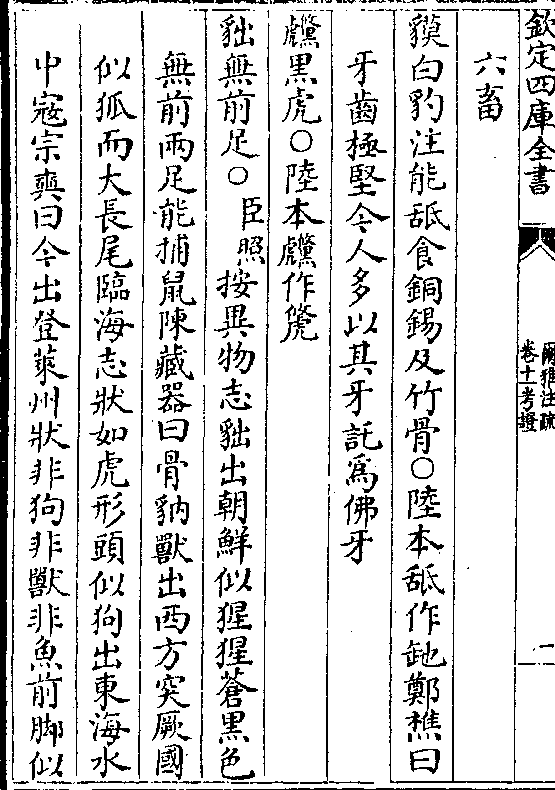 欽定四庫全書
爾雅注疏
卷十一考證
一
六畜
貘白豹注能舐食銅錫及竹骨○陸本舐作䑛鄭樵曰
牙齒極堅今人多以其牙託為佛牙
黑虎○陸本作
貀無前足○臣照按異物志貀出朝鮮似猩猩蒼黑色
無前兩足能捕鼠陳藏器曰骨豽獸出西方突厥國
似狐而大長尾臨海志狀如虎形頭似狗出東海水
中寇宗奭曰今出登萊州狀非狗非獸非魚前脚似